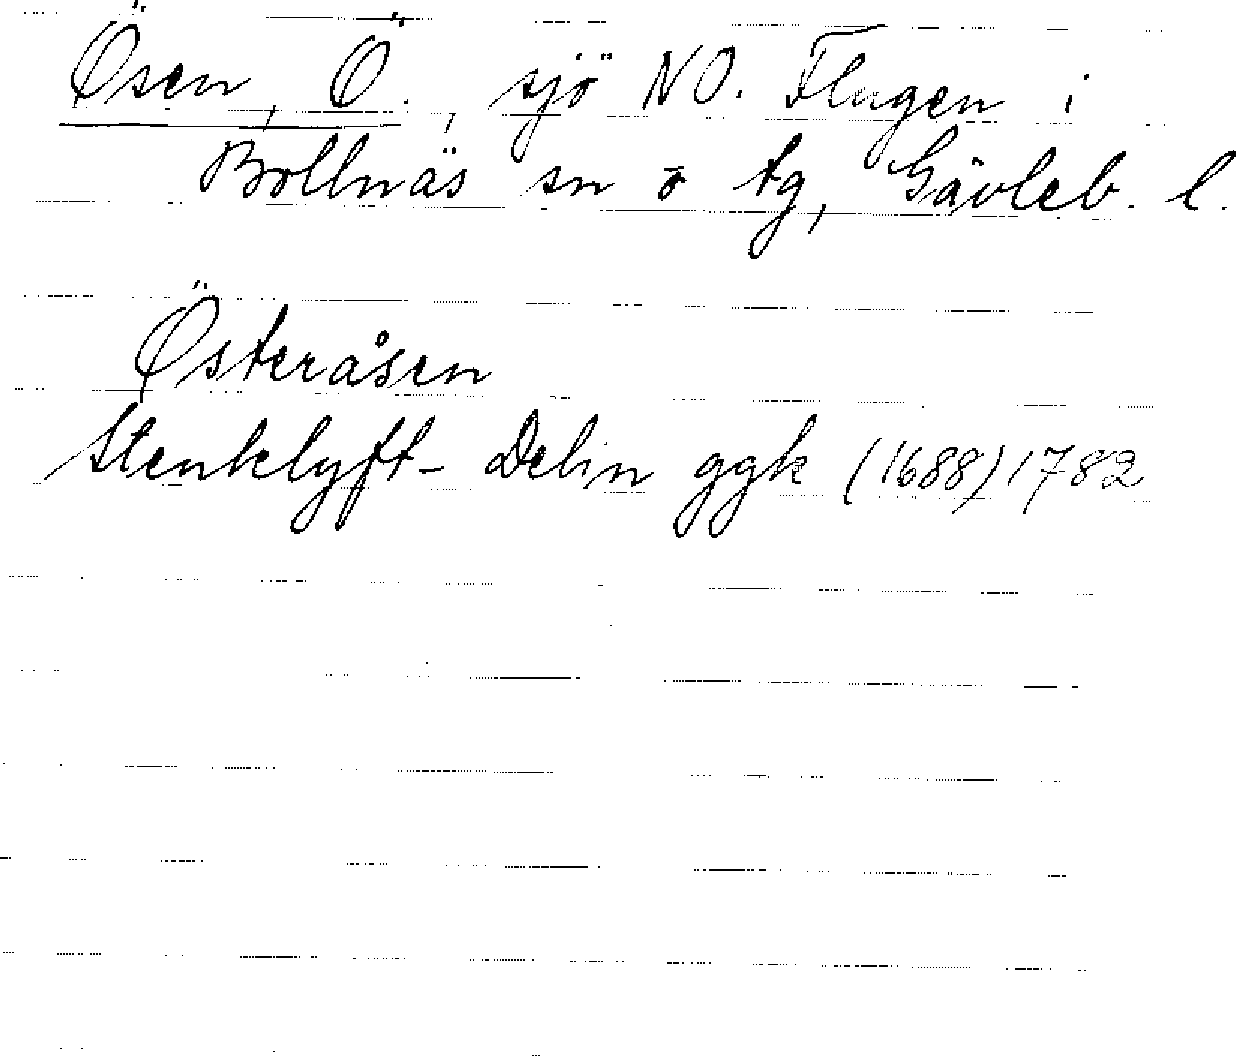 Ösen, Ö., sjö NO. Flugen i
Bollnäs sn o tg, Gävleb. l.
Österåsen
Stenklyft- Delin ggk (1688) 1782